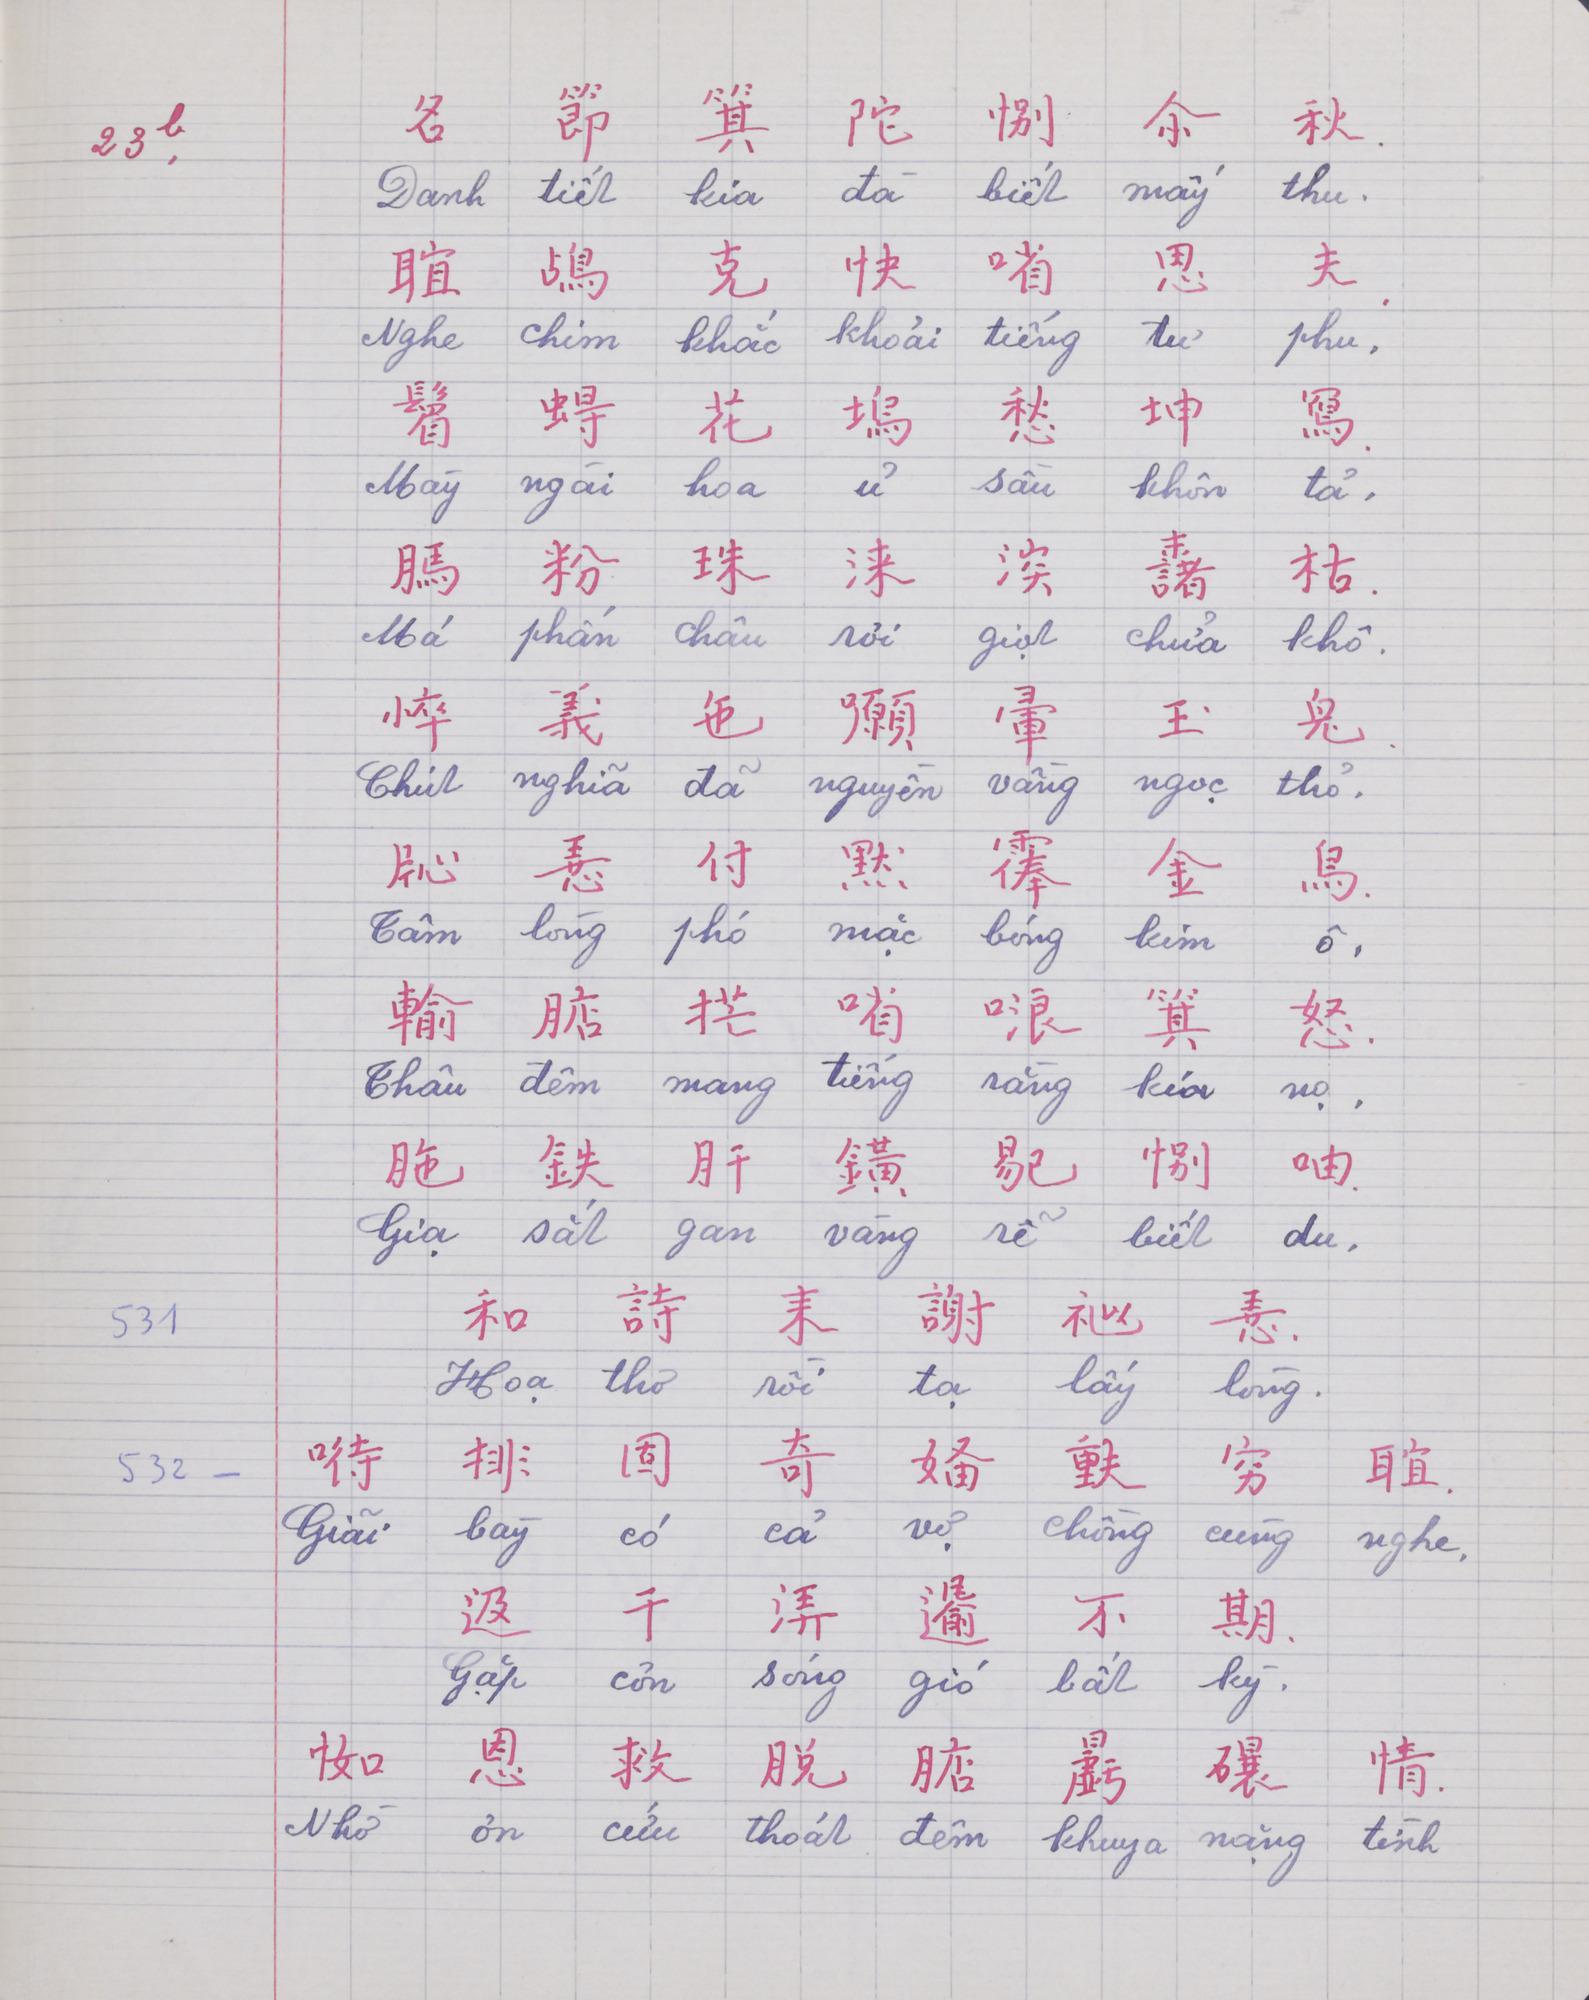 23b, 名 節 箕 陀 惻 尒 秋.
Danh tiết kia đà biết mấy thu.
䏧 鴣 克 快 㗂 思 夫.
Nghe chim khắc khoải tiếng tư phu,
花 塢 愁 坤 寫.
Mày ngài hoa ủ sầu khôn tả,
𦟐 粉 珠 淶 渃 枯.
Má phấn châu rơi giọt chửa khô.
悴 義 㐌 願 暈 玉 兔.
Chút nghĩa đã nguyền vầng ngọc thỏ,
付 默 金 烏.
Tấm lòng phó mặc bóng kim ô,
輸 㗂 哴 箕 怒.
Thâu đêm mang tiếng rằng kia nọ,
鉄 肝 鐄
Giạ sắt gan vàng rẽ biết du,
531 和 詩 耒 謝 祂
Hoạ thơ rồi tạ lấy lòng.
532 – 排 固 奇 窮 䏧.
Giãi bày có cả vợ chồng cùng nghe,
干 不 期.
Gặp cơn sóng gió bất kỳ.
恩 救 脱 情.
Nhờ ơn cứu thoát đêm khuya nặng tình